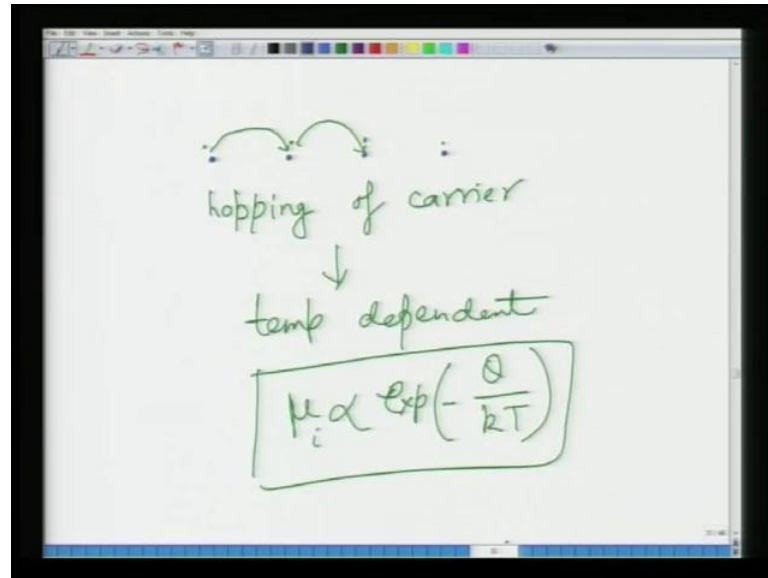 File Edit View Insert Actions Tools Help
hopping of carrier
↓
temp dependent
μᵢ ∝ exp(- Q / kT)